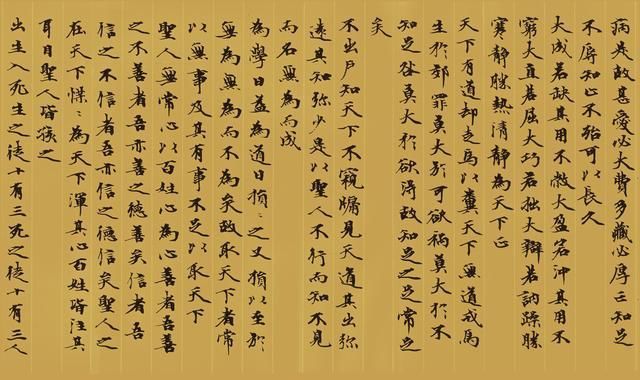 病是故甚愛必大費多藏必厚亡知足
不辱知止不殆可以長久
大成若缺其用不敝大盈若沖其用不
窮大直若屈大巧若拙大辯若訥躁勝
寒靜勝熱清靜為天下正
天下有道却走馬以糞天下無道戎馬
生於郊罪莫大於可欲禍莫大於不
知足咎莫大於欲得故知足之足常足
矣
不出戶知天下不窺牖見天道其出弥
遠其知弥少是以聖人不行而知不見
而名無為而成
為學日益為道日損:之又損以至於
無為無為而不為矣故取天下者常
以無事及其有事不足以取天下
聖人無常心以百姓心為心善者吾善
之不善者吾亦善之德善矣信者吾
信之不信者吾亦信之德信矣聖人之
在天下惵:為天下渾其心百姓皆注其
耳目聖人皆孩之
出生入死生之徒十有三死之徒十有三人